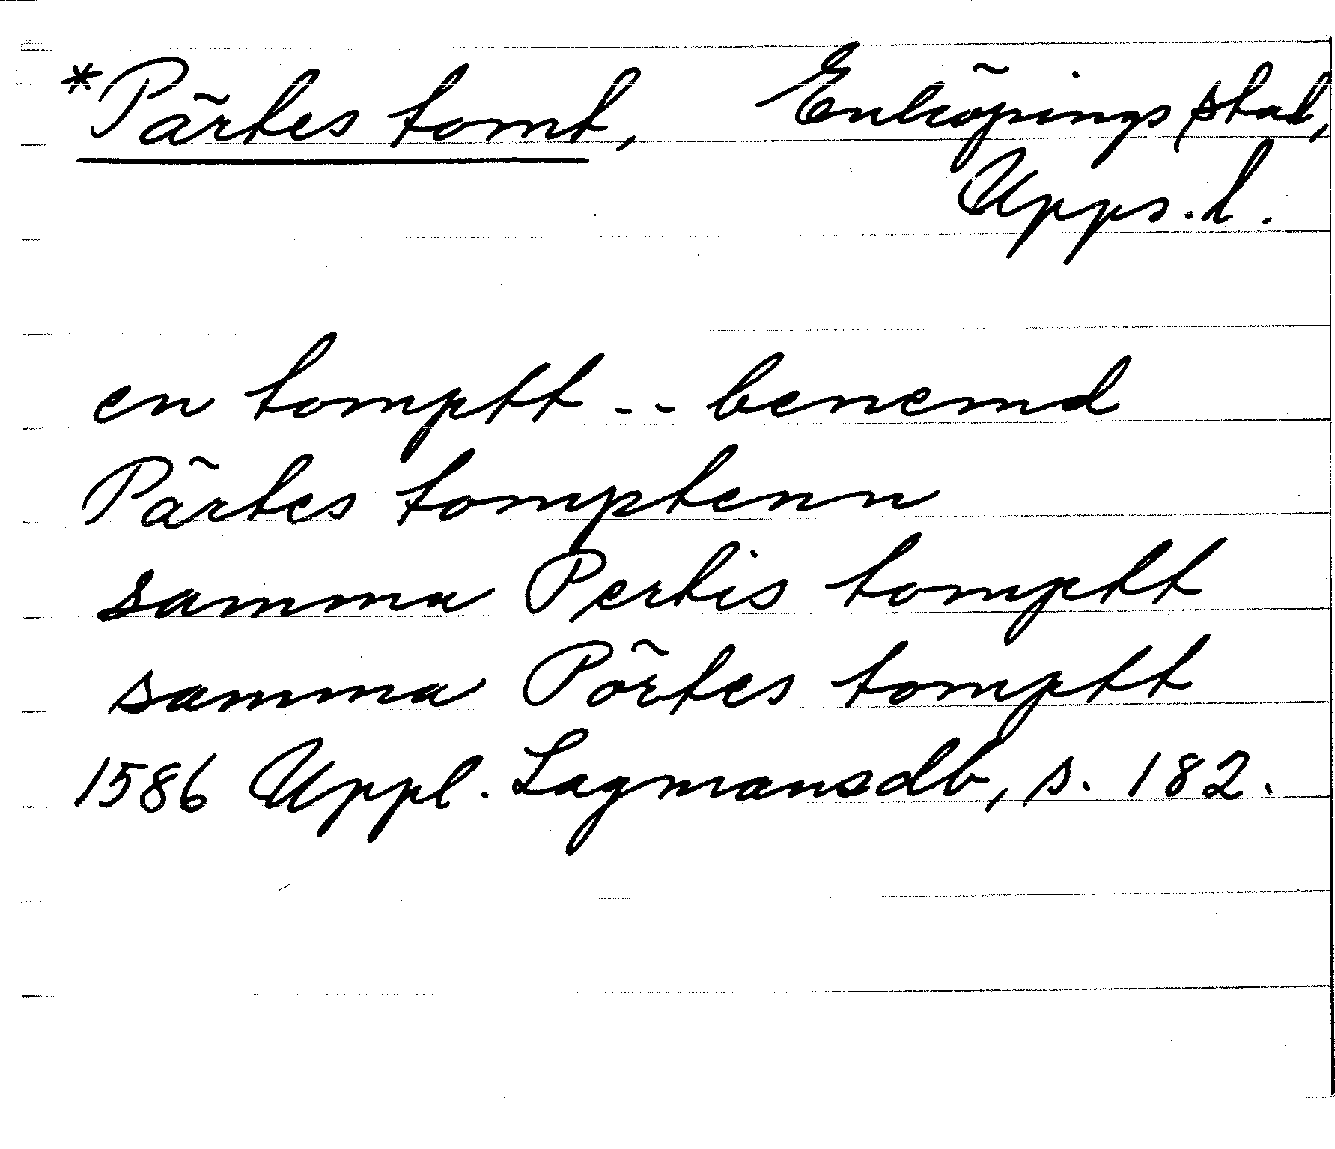 *Pärtes tomt, Enköpings stad,
Upps. l.
en tomptt -- benemd
Pärtes tomptenn
samma Pertis tomptt
samma Pörtes tomptt
1586 Uppl. Lagmansdb, s. 182.